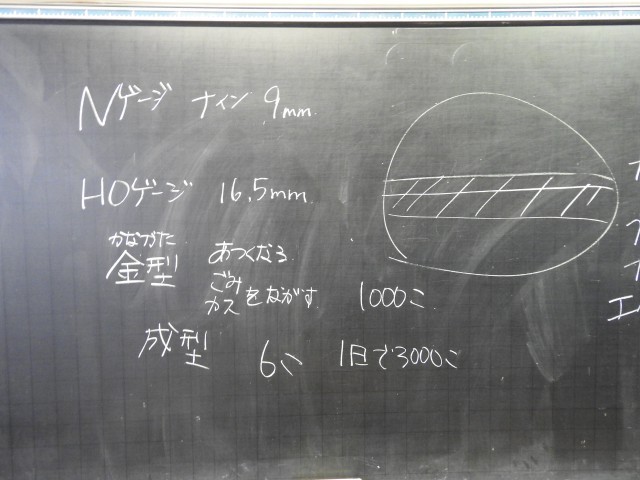 Nゲージ ナイン 9mm
HOゲージ 16.5mm
かながた
金型 あつくなる
ごみ
カスをながす 1000こ
成型 6こ 1日で3000こ